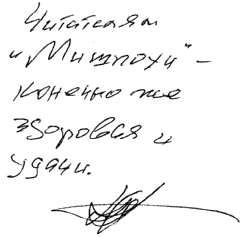 Читателям
"Мишпохи" -
конечно же
здоровья и
удачи.